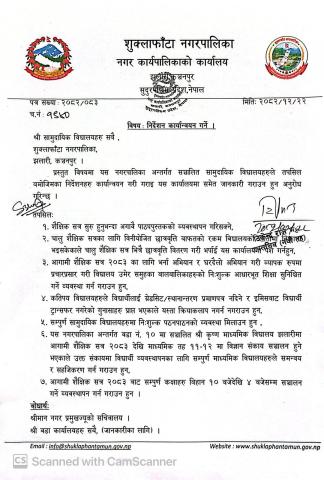 शुक्लाफाँटा नगरपालिका
नगर कार्यपालिकाको कार्यालय
झलारी,कञ्चनपुर
सुदूरपश्चिम प्रदेश,नेपाल
पत्र संख्या : २०८२/०८३
मिति: २०८२/१२/२२
च.नं :
विषय: निर्देशन कार्यान्वयन गर्ने ।
श्री सामुदायिक विद्यालयहरु सबै ,
शुक्लाफाँटा नगरपालिका,
झलारी, कञ्चनपुर ।
प्रस्तुत विषयमा यस नगरपालिका अन्तर्गत सञ्चालित सामुदायिक विद्यालयहरुले तपसिल
बमोजिमका निर्देशनहरु कार्यान्वयन गरी गराई यस कार्यालयमा समेत जानकारी गराउन हुन अनुरोध
गरिन्छ ।
तपसिल:
१. शैक्षिक सत्र सुरु हुनुभन्दा अगावै पाठ्यपुस्तकको व्यवस्थापन गरिसक्ने,
२. चालु शैक्षिक सत्रका लागि विनियोजित छात्रवृत्ति बापतको रकम विद्यालयको
भइसकेकाले चालु शैक्षिक सत्र भित्रै छात्रवृत्ति वितरण गरी भर्पाई यस कार्यालयमा पेश गर्नहुन,
३. आगामी शैक्षिक सत्र २०८३ का लागि भर्ना अभियान र घरदैलो अभियान गरी व्यापक रुपमा
प्रचारप्रसार गरी विद्यालय उमेर समुहका बालबालिकाहरुको नि:शुल्क आधारभूत शिक्षा सुनिश्चित
गर्ने व्यवस्था गर्न गराउन हुन,
४. कतिपय विद्यालयहरुले विद्यार्थीलाई ग्रेडसिट/स्थानान्तरण प्रमाणपत्र नदिने र इमिसबाट विद्यार्थी
ट्रान्सफर नगरेको गुनासाहरु प्राप्त भएकाले यस्ता क्रियाकलाप नगर्न नगराउन हुन,
५. सम्पुर्ण सामुदायिक विद्यालयहरुमा नि:शुल्क पठनपाठनको व्यवस्था मिलाउन हुन ,
६. यस नगरपालिका अन्तर्गत वडा नं. १० मा सञ्चालित श्री कृष्ण माध्यमिक विद्यालय झलारीमा
आगामी शैक्षिक सत्र २०८३ देखि माध्यमिक तह ११-१२ मा विज्ञान संकाय सञ्चालन हुने
भएकाले उक्त संकायमा विद्यार्थी व्यवस्थापनका लागि सम्पुर्ण माध्यमिक विद्यालयहरुले समन्वय
र सहजिकरण गर्न गराउन हुन,
७. आगामी शैक्षिक सत्र २०८३ बाट सम्पुर्ण कक्षाहरु विहान १० बजेदेखि ४ बजेसम्म सञ्चालन
गर्ने व्यवस्थापन गर्न गराउन हुन ।
बोधार्थ:
श्रीमान नगर प्रमुखज्यूको सचिवालय ।
श्री वडा कार्यालयहरु सबै, (जानकारीका लागि) ।
Email : info@shuklaphantamun.gov.np
Website : www.shuklaphantamun.gov.np
CS Scanned with CamScanner